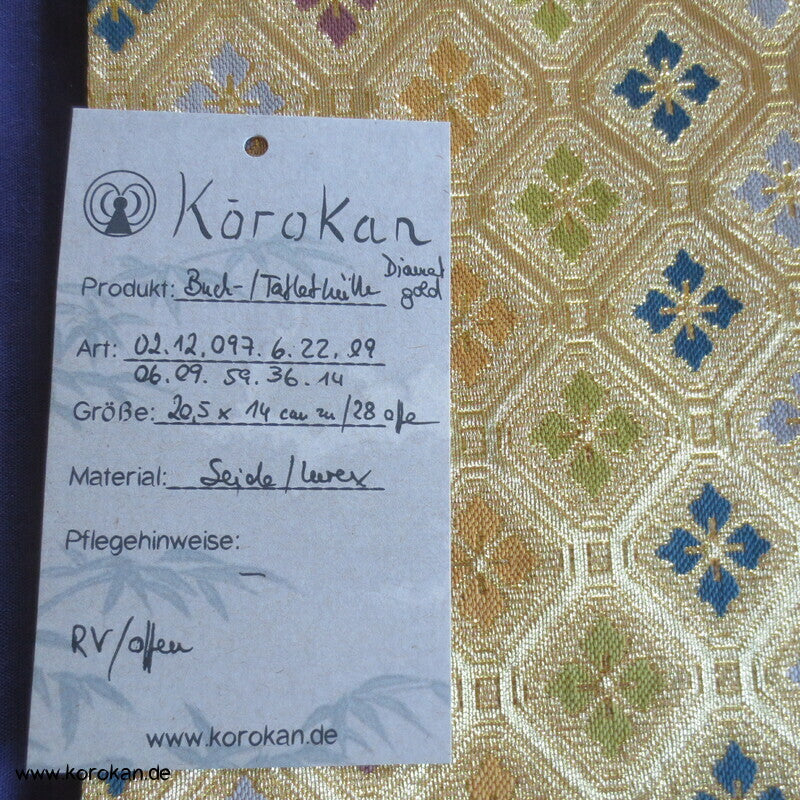 Kōrokan
Produkt: Buch-/Tablethülle Diamat gold
Art: 02.12.097.6.22.09
06.09.59.36.14
Größe: 20,5 x 14 cm zu/28 offe
Material: Seide/Lurex
Pflegehinweise:
—
RV/offen
www.korokan.de
www.korokan.de